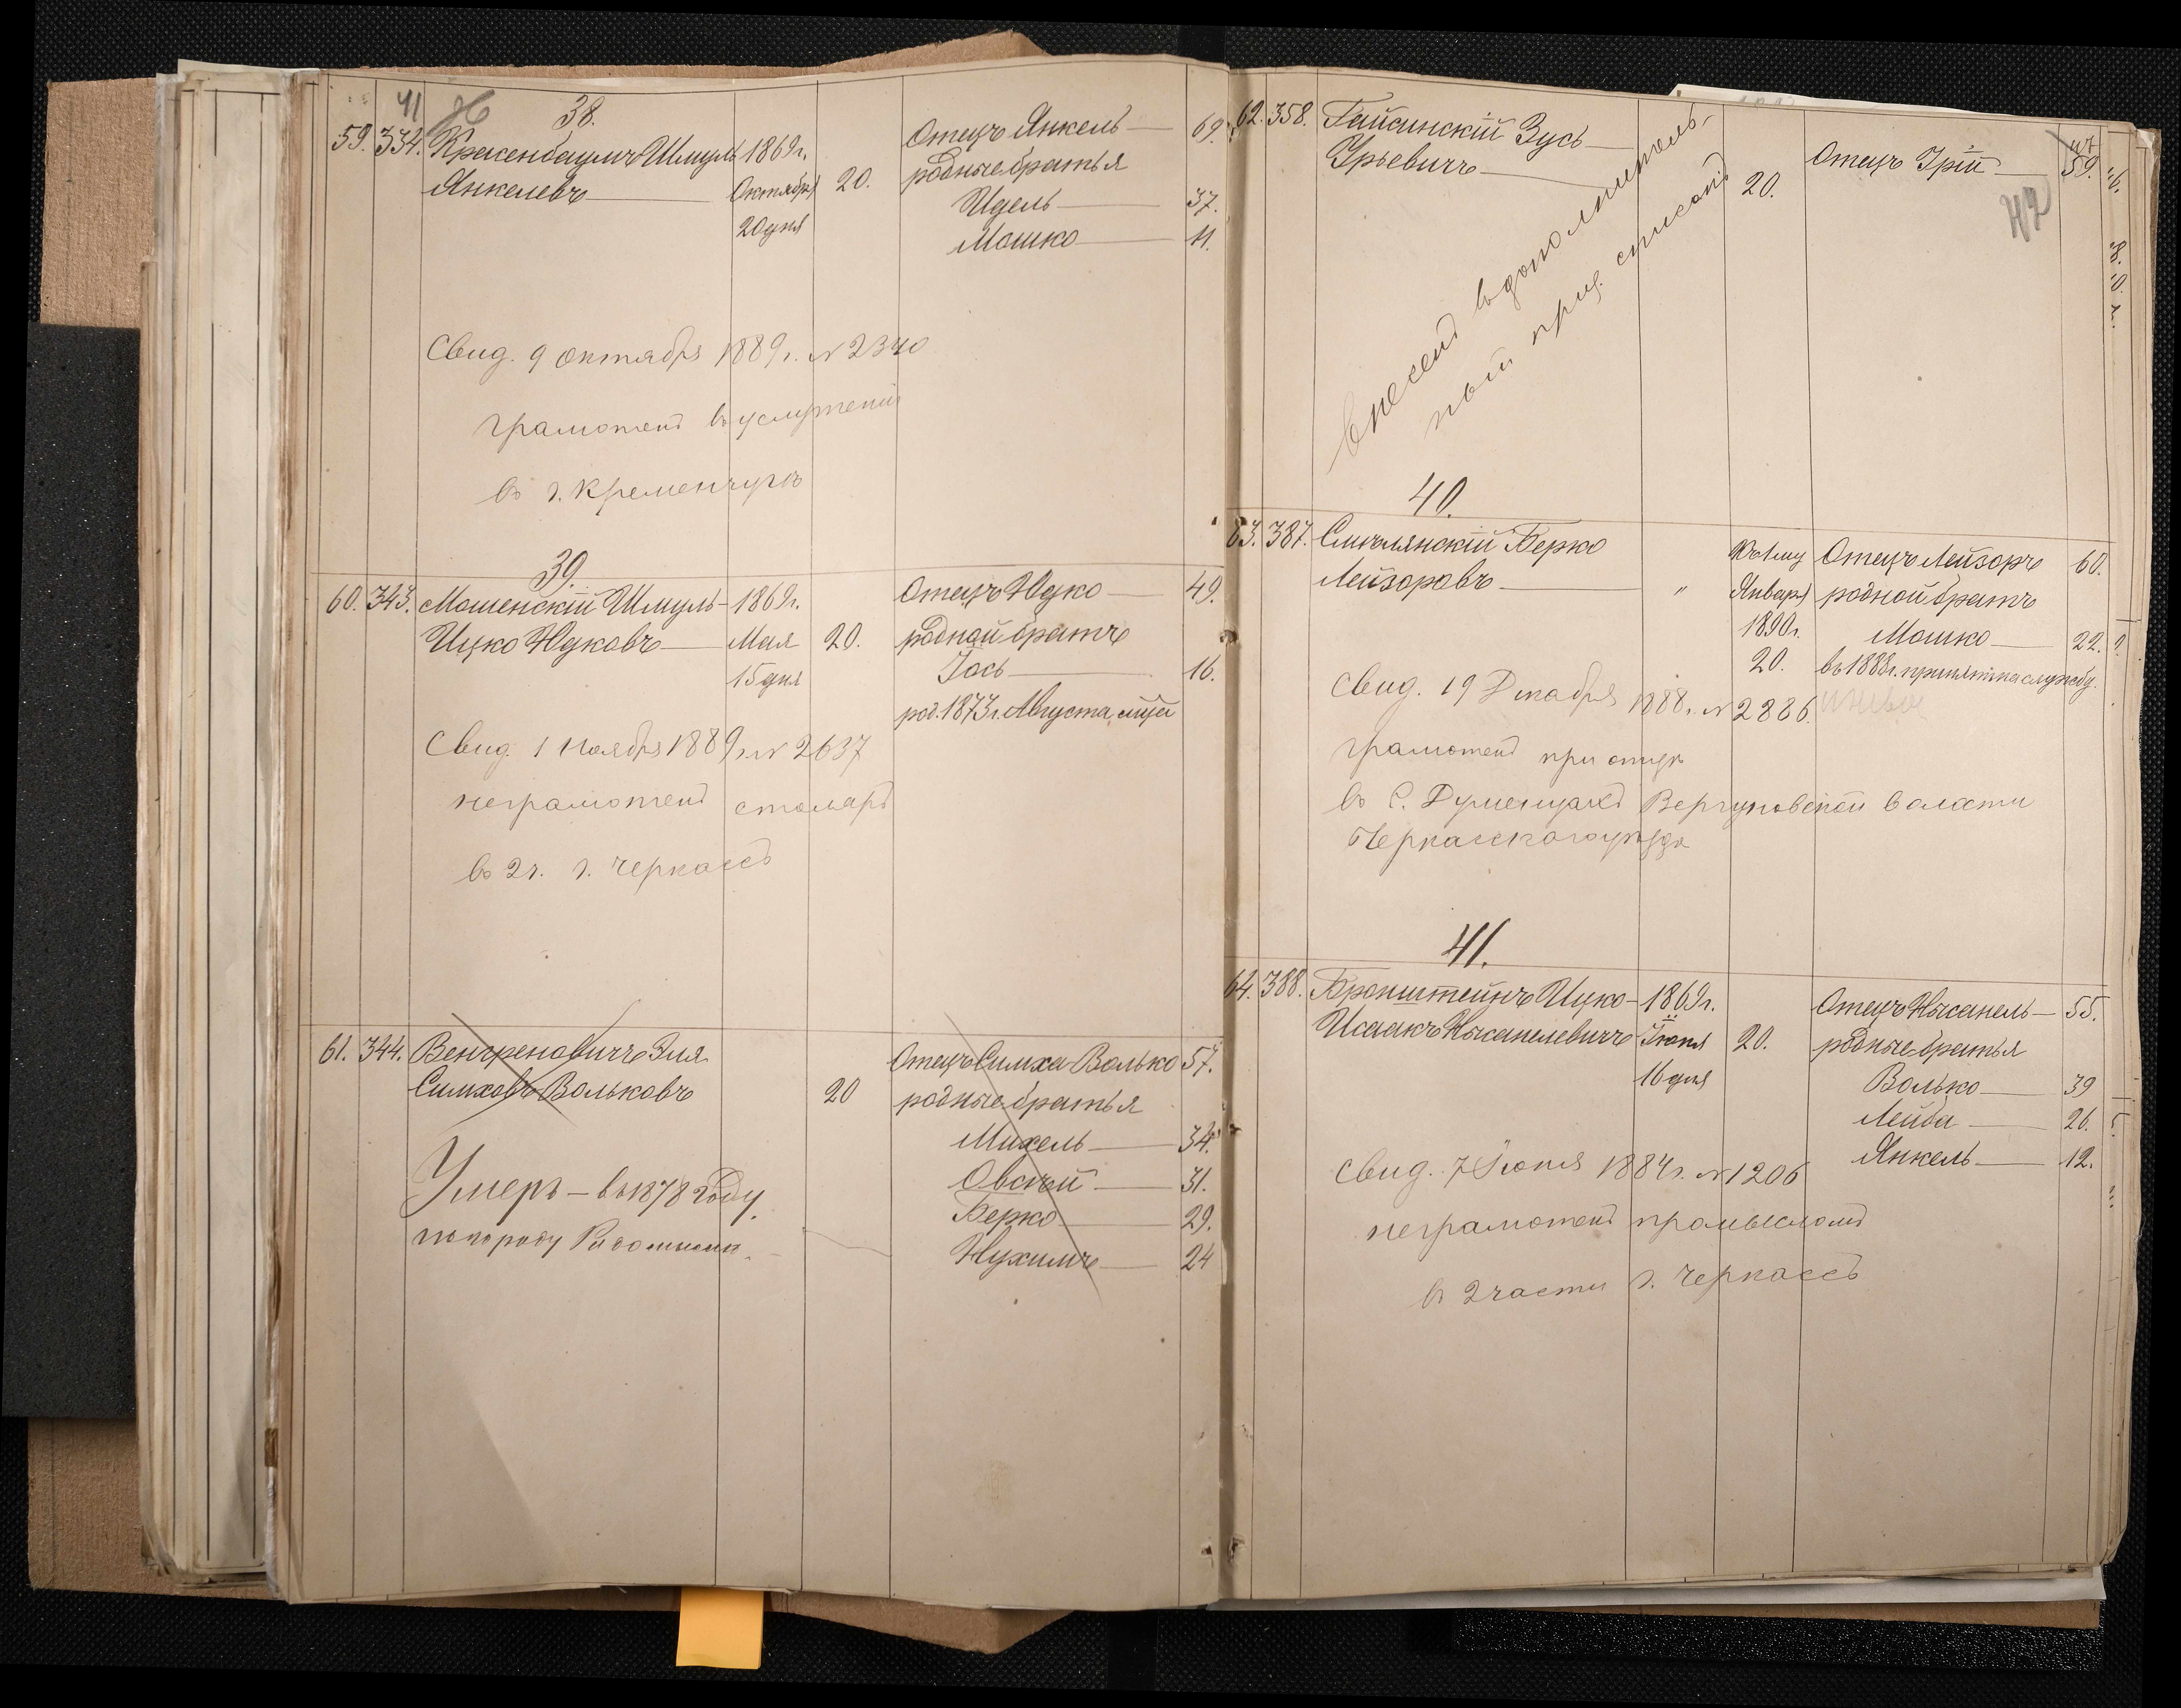 41 38.
59. 334. Красенбаумъ Шмуль 1869г. 20. Отецъ Янкель 69.
Янкелевъ Октября родные братья
20 дня Идель 37.
Мошко 11.
Свид. 9 октября 1889г. № 2340
грамотенъ в услужении
въ г. Кременчугѣ
39.
60. 343. Мошенскій Шмуль- 1869г. Отецъ Юдко 49.
Ицко Юдковъ Мая 20. родной братъ
15 дня Іось 16.
род. 1873г. Августа мца
Свид. 1 Ноября 1889г. № 2637
неграмотенъ столяръ
въ 2ч. г. Черкассъ
61. 344. Венгреновичъ Эля Отецъ Симха-Волько 57.
Симховъ-Вольковъ 20 родные братья
Михель 34.
Овсѣй 31.
Берко 29.
Нухимъ 24
Умеръ - въ 1878 году
по городу
62. 358. Гайсинскій Зусь 59.
Урьевичъ 20. Отецъ Урій
42
внесенъ въ дополнитель-
ный приз. списокъ
40.
63. 387. Смилянскій Берко Къ 1му Отецъ Лейзоръ 60.
Лейзоровъ " Января родной братъ
1890г. Мошко 22.
20. въ 1888г. принятъ на службу.
Свид. 19 Декабря 1888г. № 2886
грамотенъ при отцѣ
въ С. Думенцахъ Вергуновской волости
Черкасскаго уѣзда
41.
64. 388. Бронштейнъ Ицко- 1869г. Отецъ Нысанель 55.
Исаакъ Нысанелевичъ Іюня 20. родные братья
16 дня Волько 39
Лейба 26.
Янкель 12.
Свид. 7 Июня 1884г. № 1206
неграмотенъ промысломъ
въ 2 части г. Черкассъ